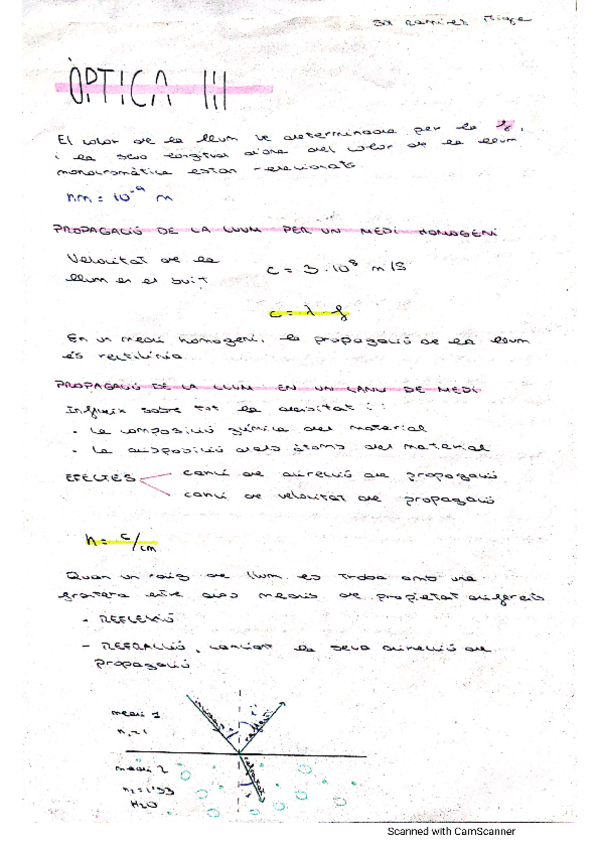 Ramirez
ÒPTICA III
El color de la llum ve determinada per la f,
i la seva longitud d'ona del color de la llum
monocromàtica estan relacionats.
nm = 10⁻⁹ m
PROPAGACIÓ DE LA LLUM PER UN MEDI HOMOGENI
Velocitat de la
llum en el buit
c = 3·10⁸ m/s
c = λ · f
En un medi homogeni, la propagació de la llum
és rectilínia
PROPAGACIÓ DE LA LLUM EN UN CANVI DE MEDI
Influeix sobre tot la densitat i:
- La composició química del material
- La disposició dels àtoms del material
EFECTES
canvi de direcció de propagació
canvi de velocitat de propagació
n = c/cm
Quan un raig de llum es troba amb una
frontera entre dos medis de propietat diferents
- REFLEXIÓ
- REFRACCIÓ, canviant la seva direcció de
propagació
medi 1
n₁ = 1
incident
reflectit
i
medi 2
n₂ = 1'33
H₂O
refractat
Scanned with CamScanner